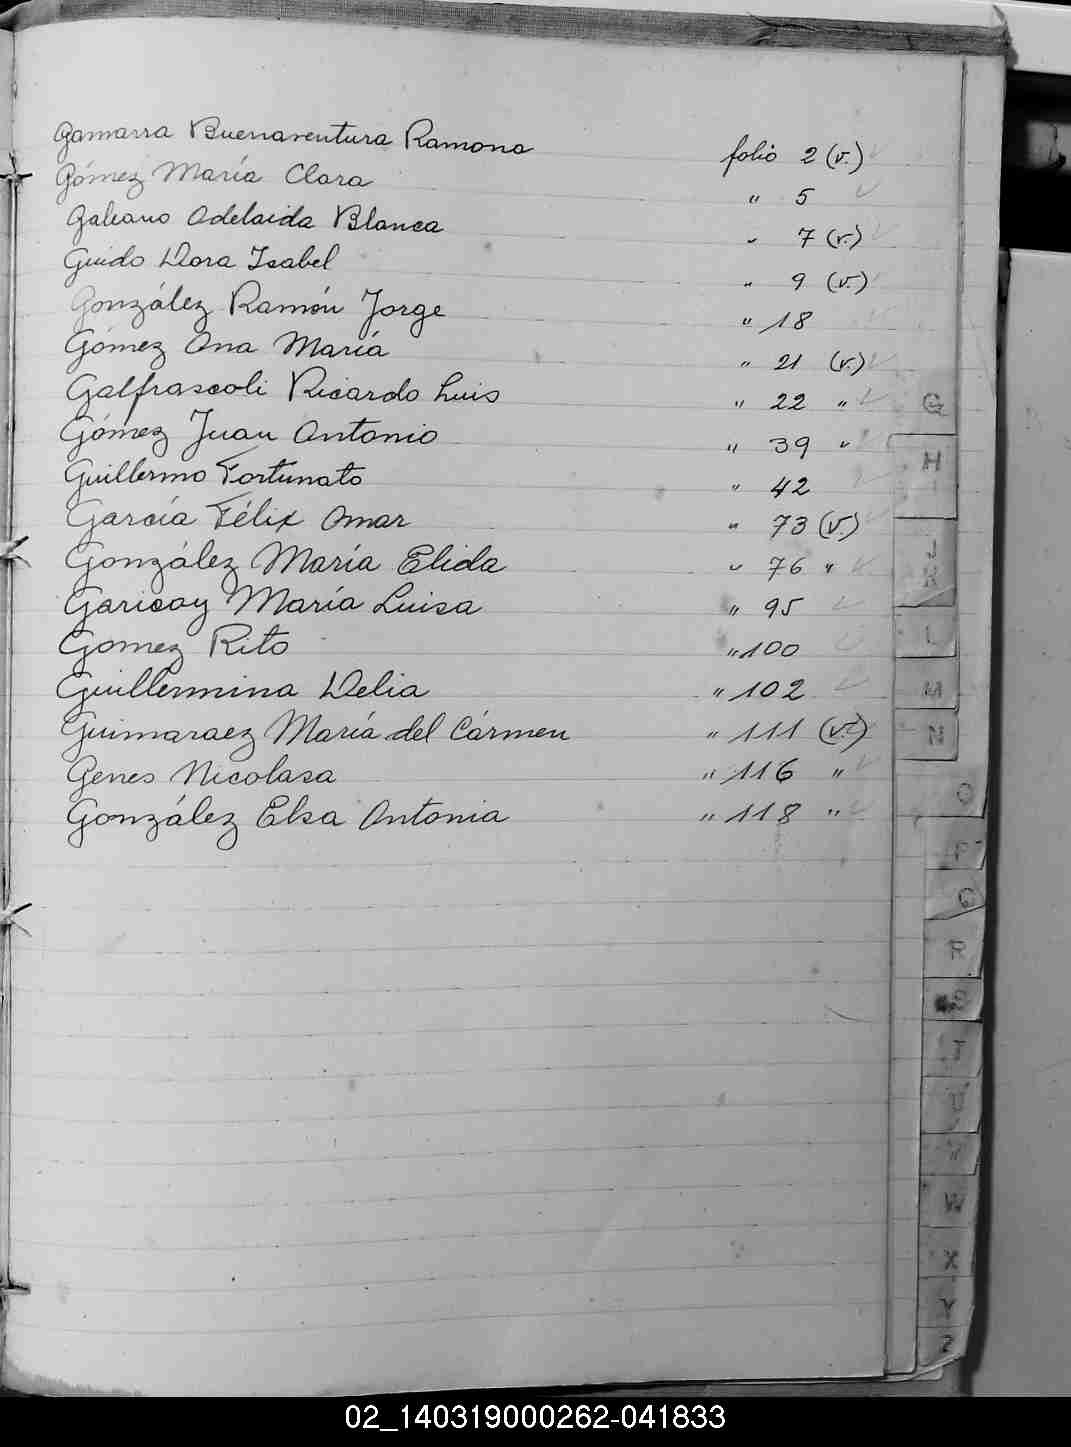 Gamarra Buenaventura Ramona folio 2 (v.)
Gómez María Clara " 5
Galeano Adelaida Blanca " 7 (v.)
Guido Dora Isabel " 9 (v.)
González Ramón Jorge " 18
Gómez Ana María " 21 (v.)
Galfrascoli Ricardo Luis " 22 "
Gómez Juan Antonio " 39 "
Guillermo Fortunato " 42
García Félix Omar " 73 (v.)
González María Elida " 76 "
Garicoy María Luisa " 95
Gomez Rito " 100
Guillermina Delia " 102
Guimaraez María del Cármen " 111 (v.)
Genes Nicolasa " 116 "
González Elsa Antonia " 118 "
G
H
J
K
L
M
N
O
P
Q
R
S
T
U
V
W
X
Y
Z
02_140319000262-041833